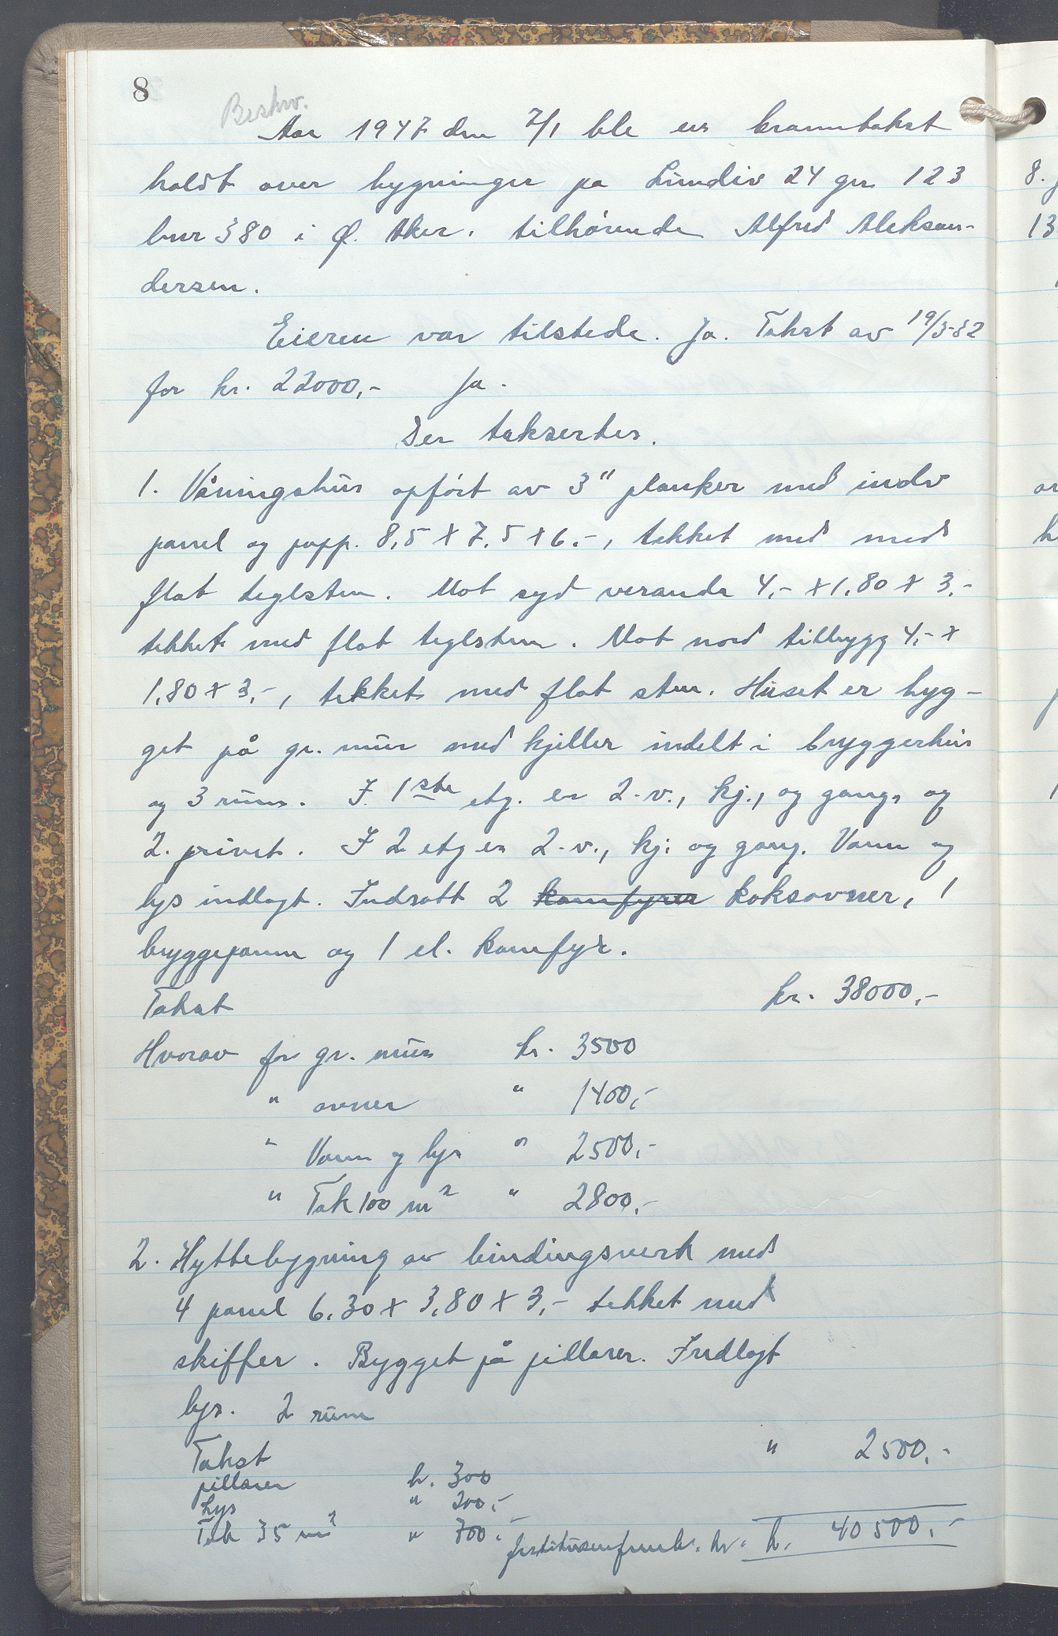 8
Beskrv.
Aar 1947 den 7/1 ble en branntakst
holdt over bygninger pa Lundiv 24 gnr 123
bnr 380 i Ø. Aker. tilhørende Alfred Aleksan-
dersen.
Eieren var tilstede. Ja. Takst av 19/3-32
for kr. 22000,- Ja.
Der taksertes.
1. Våningshus opført av 3" planker med indv
panel og papp. 8,5 x 7,5 x 6,-, tekket med med
flat teglsten. Mot syd veranda 4,- x 1,80 x 3,-
tekket med flat teglsten. Mot nord tilbygg 4,- x
1,80 x 3,-, tekket med flat sten. Huset er byg-
get på gr. mur med kjeller indelt i bryggerhus
og 3 rum. I 1ste etg. er 2 v., kj., og gang, og
2 privet. I 2 etg er 2 v., kj. og gang. Vann og
lys indlagt. Indsatt 2 komfyrer koksovner, 1
bryggepanne og 1 el. komfyr.
Takst kr. 38000,-
Hvorav for gr. mur kr. 3500
" ovner " 1400,-
" Vann og lys " 2500,-
" Tak 100 m² " 2800,-
2. Hyttebygning av bindingsverk med
4 panel 6,30 x 3,80 x 3,- tekket med
skiffer. Bygget på pillarer. Indlagt
lys. 2 rum
Takst " 2500,-
pillarer kr. 300
Lys " 200,-
Tak 35 m² " 700,-
kr. 40500,-
8.
13